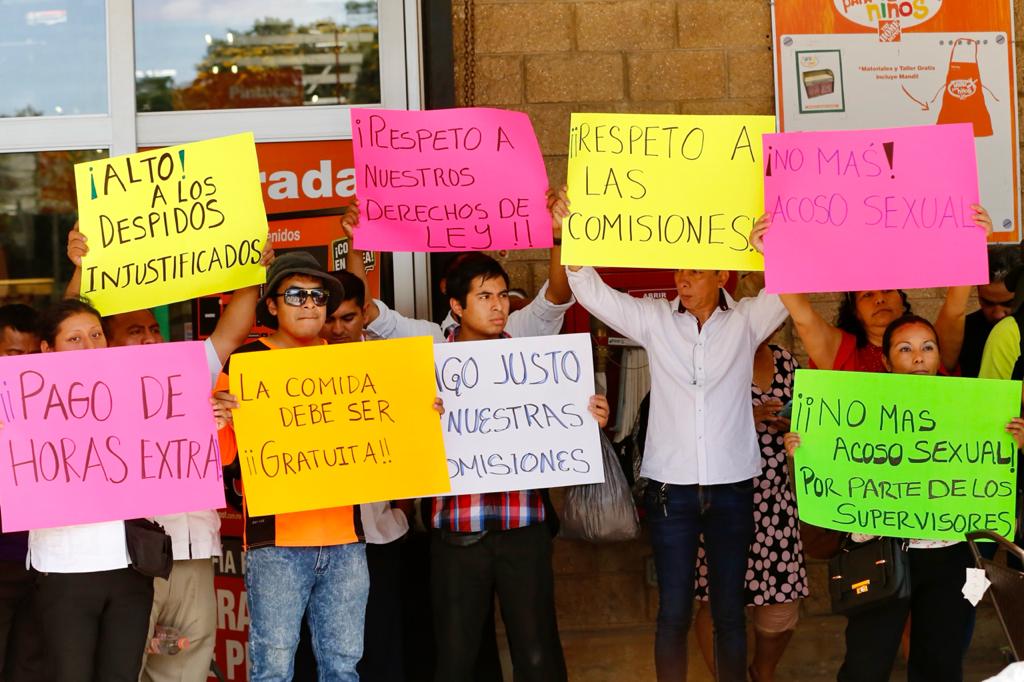 niños
*Materiales y Taller Gratis
Incluye Mandil
Pinturas
rada
¡ALTO!
A LOS
DESPIDOS
INJUSTIFICADOS
¡RESPETO A
NUESTROS
DERECHOS DE
LEY !!
¡¡RESPETO A
LAS
COMISIONES
¡NO MAS!
ACOSO SEXUAL
¡¡PAGO DE
HORAS EXTRA
LA COMIDA
DEBE SER
¡¡GRATUITA!!
AGO JUSTO
NUESTRAS
OMISIONES
¡¡NO MAS
ACOSO SEXUAL!
POR PARTE DE LOS
SUPERVISORES
ABRIR